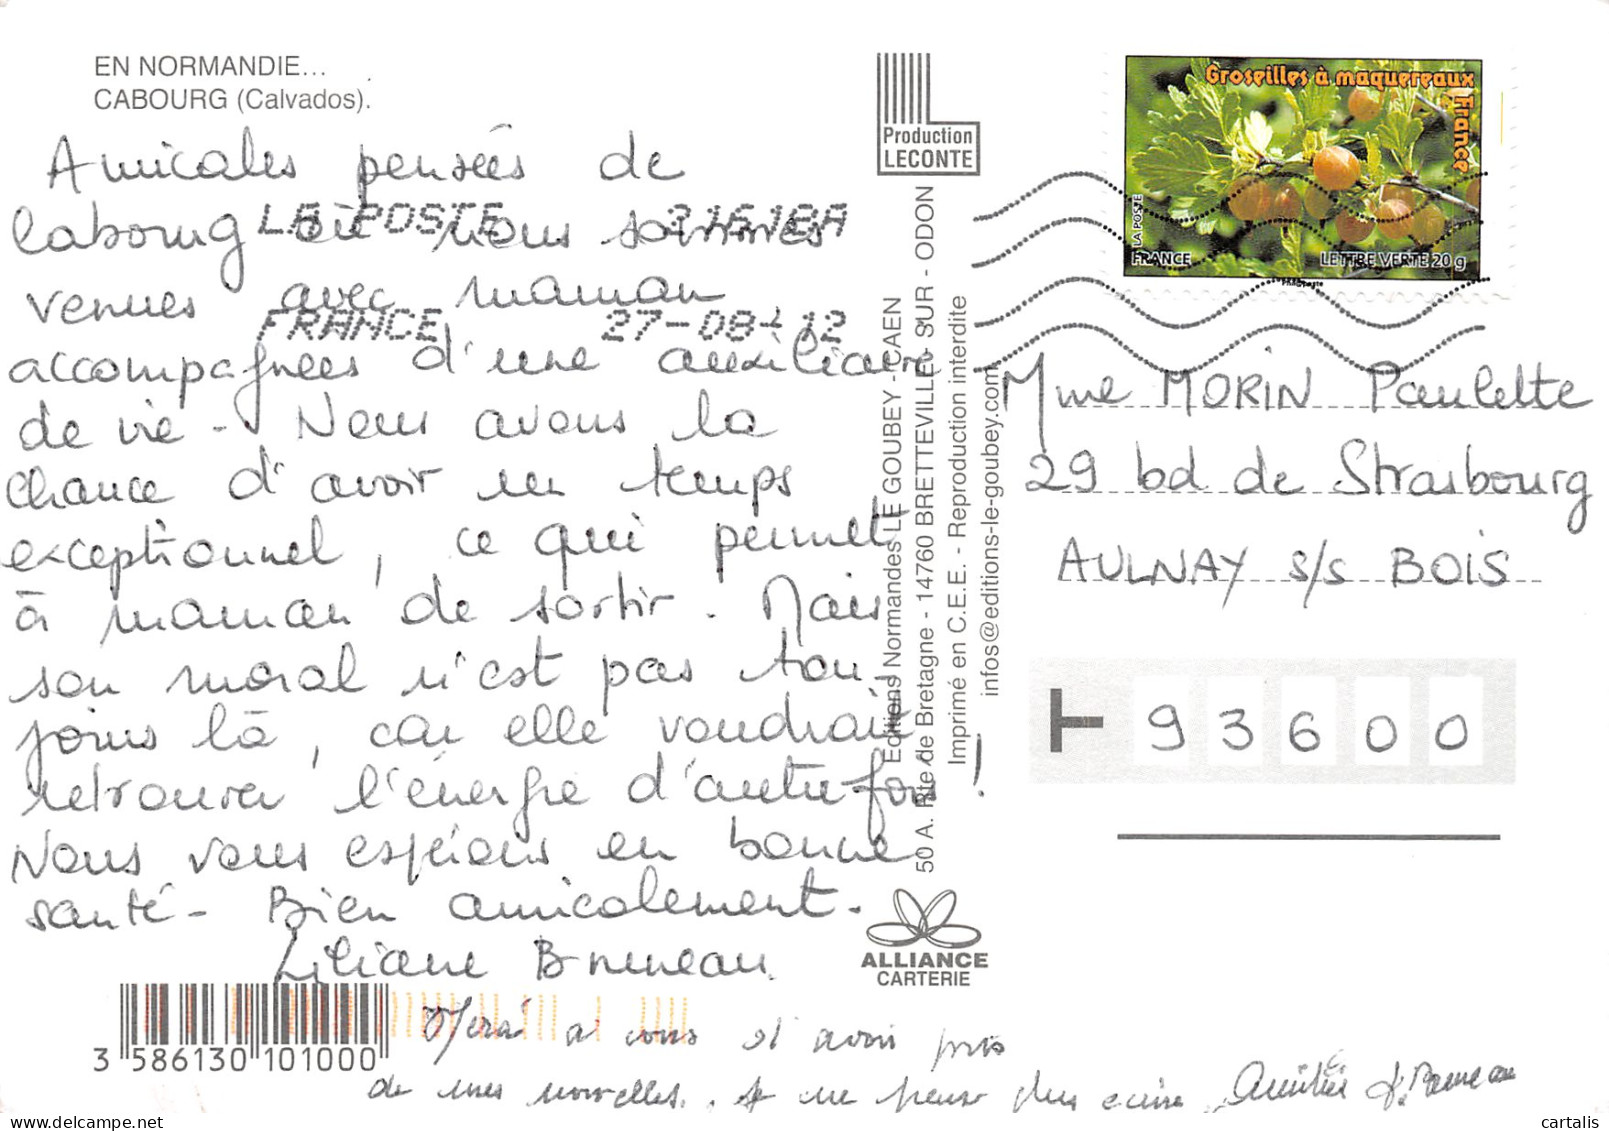 EN NORMANDIE...
CABOURG (Calvados).
Amicales pensées de
Cabourg où nous sommes
venues avec maman
accompagnées d'une auxiliaire
de vie - Nous avons la
chance d'avoir un temps
exceptionnel, ce qui permet
à maman de sortir. Mais
son moral n'est pas tou-
jours là, car elle voudrait
retrouver l'énergie d'autrefois !
Nous vous espérons en bonne
santé - Bien amicalement.
Liliane Bruneau
Merci à vous d'avoir pris
de mes nouvelles. Je ne peux plus écrire. Amitiés
3 586130 101000
LA POSTE 31618A
FRANCE 27-08-12
Production
LECONTE
Editions Normandes LE GOUBEY - CAEN
50 A. Rte de Bretagne - 14760 BRETTEVILLE - SUR - ODON
Imprimé en C.E.E. - Reproduction interdite
infos@editions-le-goubey.com
ALLIANCE
CARTERIE
Groseilles à maquereaux France
LA POSTE
FRANCE LETTRE VERTE 20 g
Phil@poste
Mme MORIN Paulette
29 bd de Strasbourg
AULNAY s/s BOIS
93600
cartalis